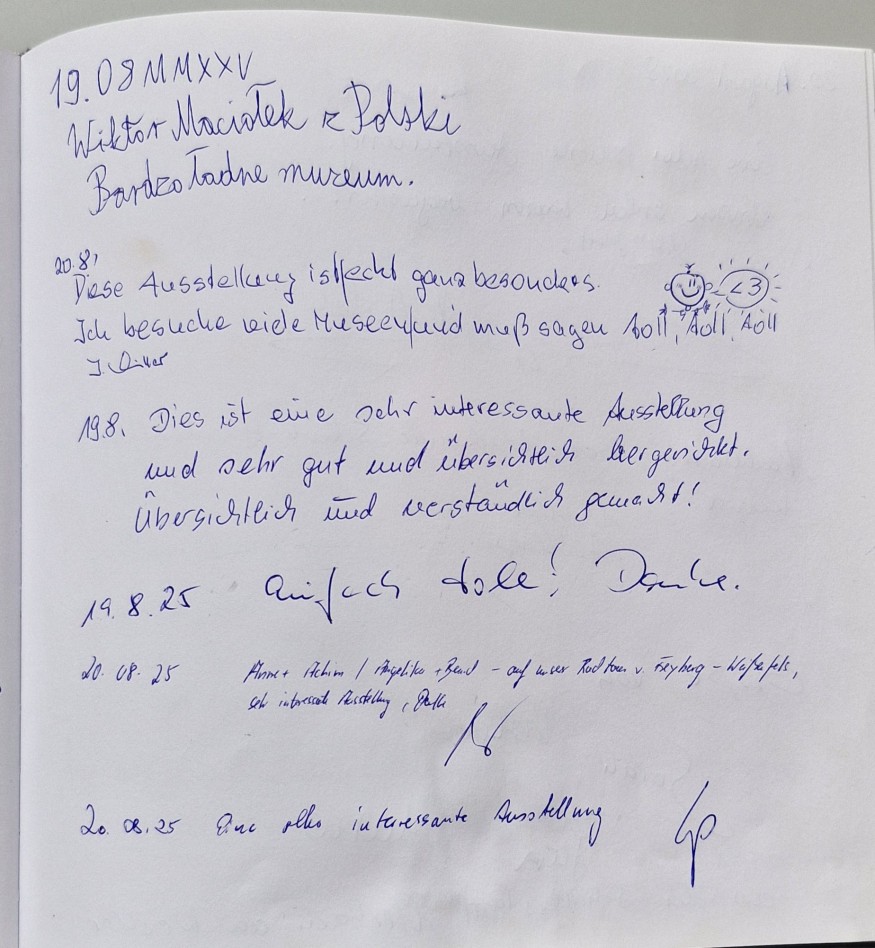 19.08 MMXXV
Wiktor Maciołek z Polski
Bardzo ładne muzeum.
20.8.
Diese Ausstellung ist echt ganz besonders.
<3
Ich besuche viele Museen und muß sagen toll, toll, toll
J.
19.8. Dies ist eine sehr interessante Ausstellung
und sehr gut und übersichtlich hergerichtet.
Übersichtlich und verständlich gemacht!
19.8.25 Einfach tole! Danke.
20.08.25 Anne + Achim / Angelika + Bernd – auf unser Radtour v. Freyberg – Weißenfels,
sehr interessante Ausstellung,
20.08.25 Eine interessante Ausstellung